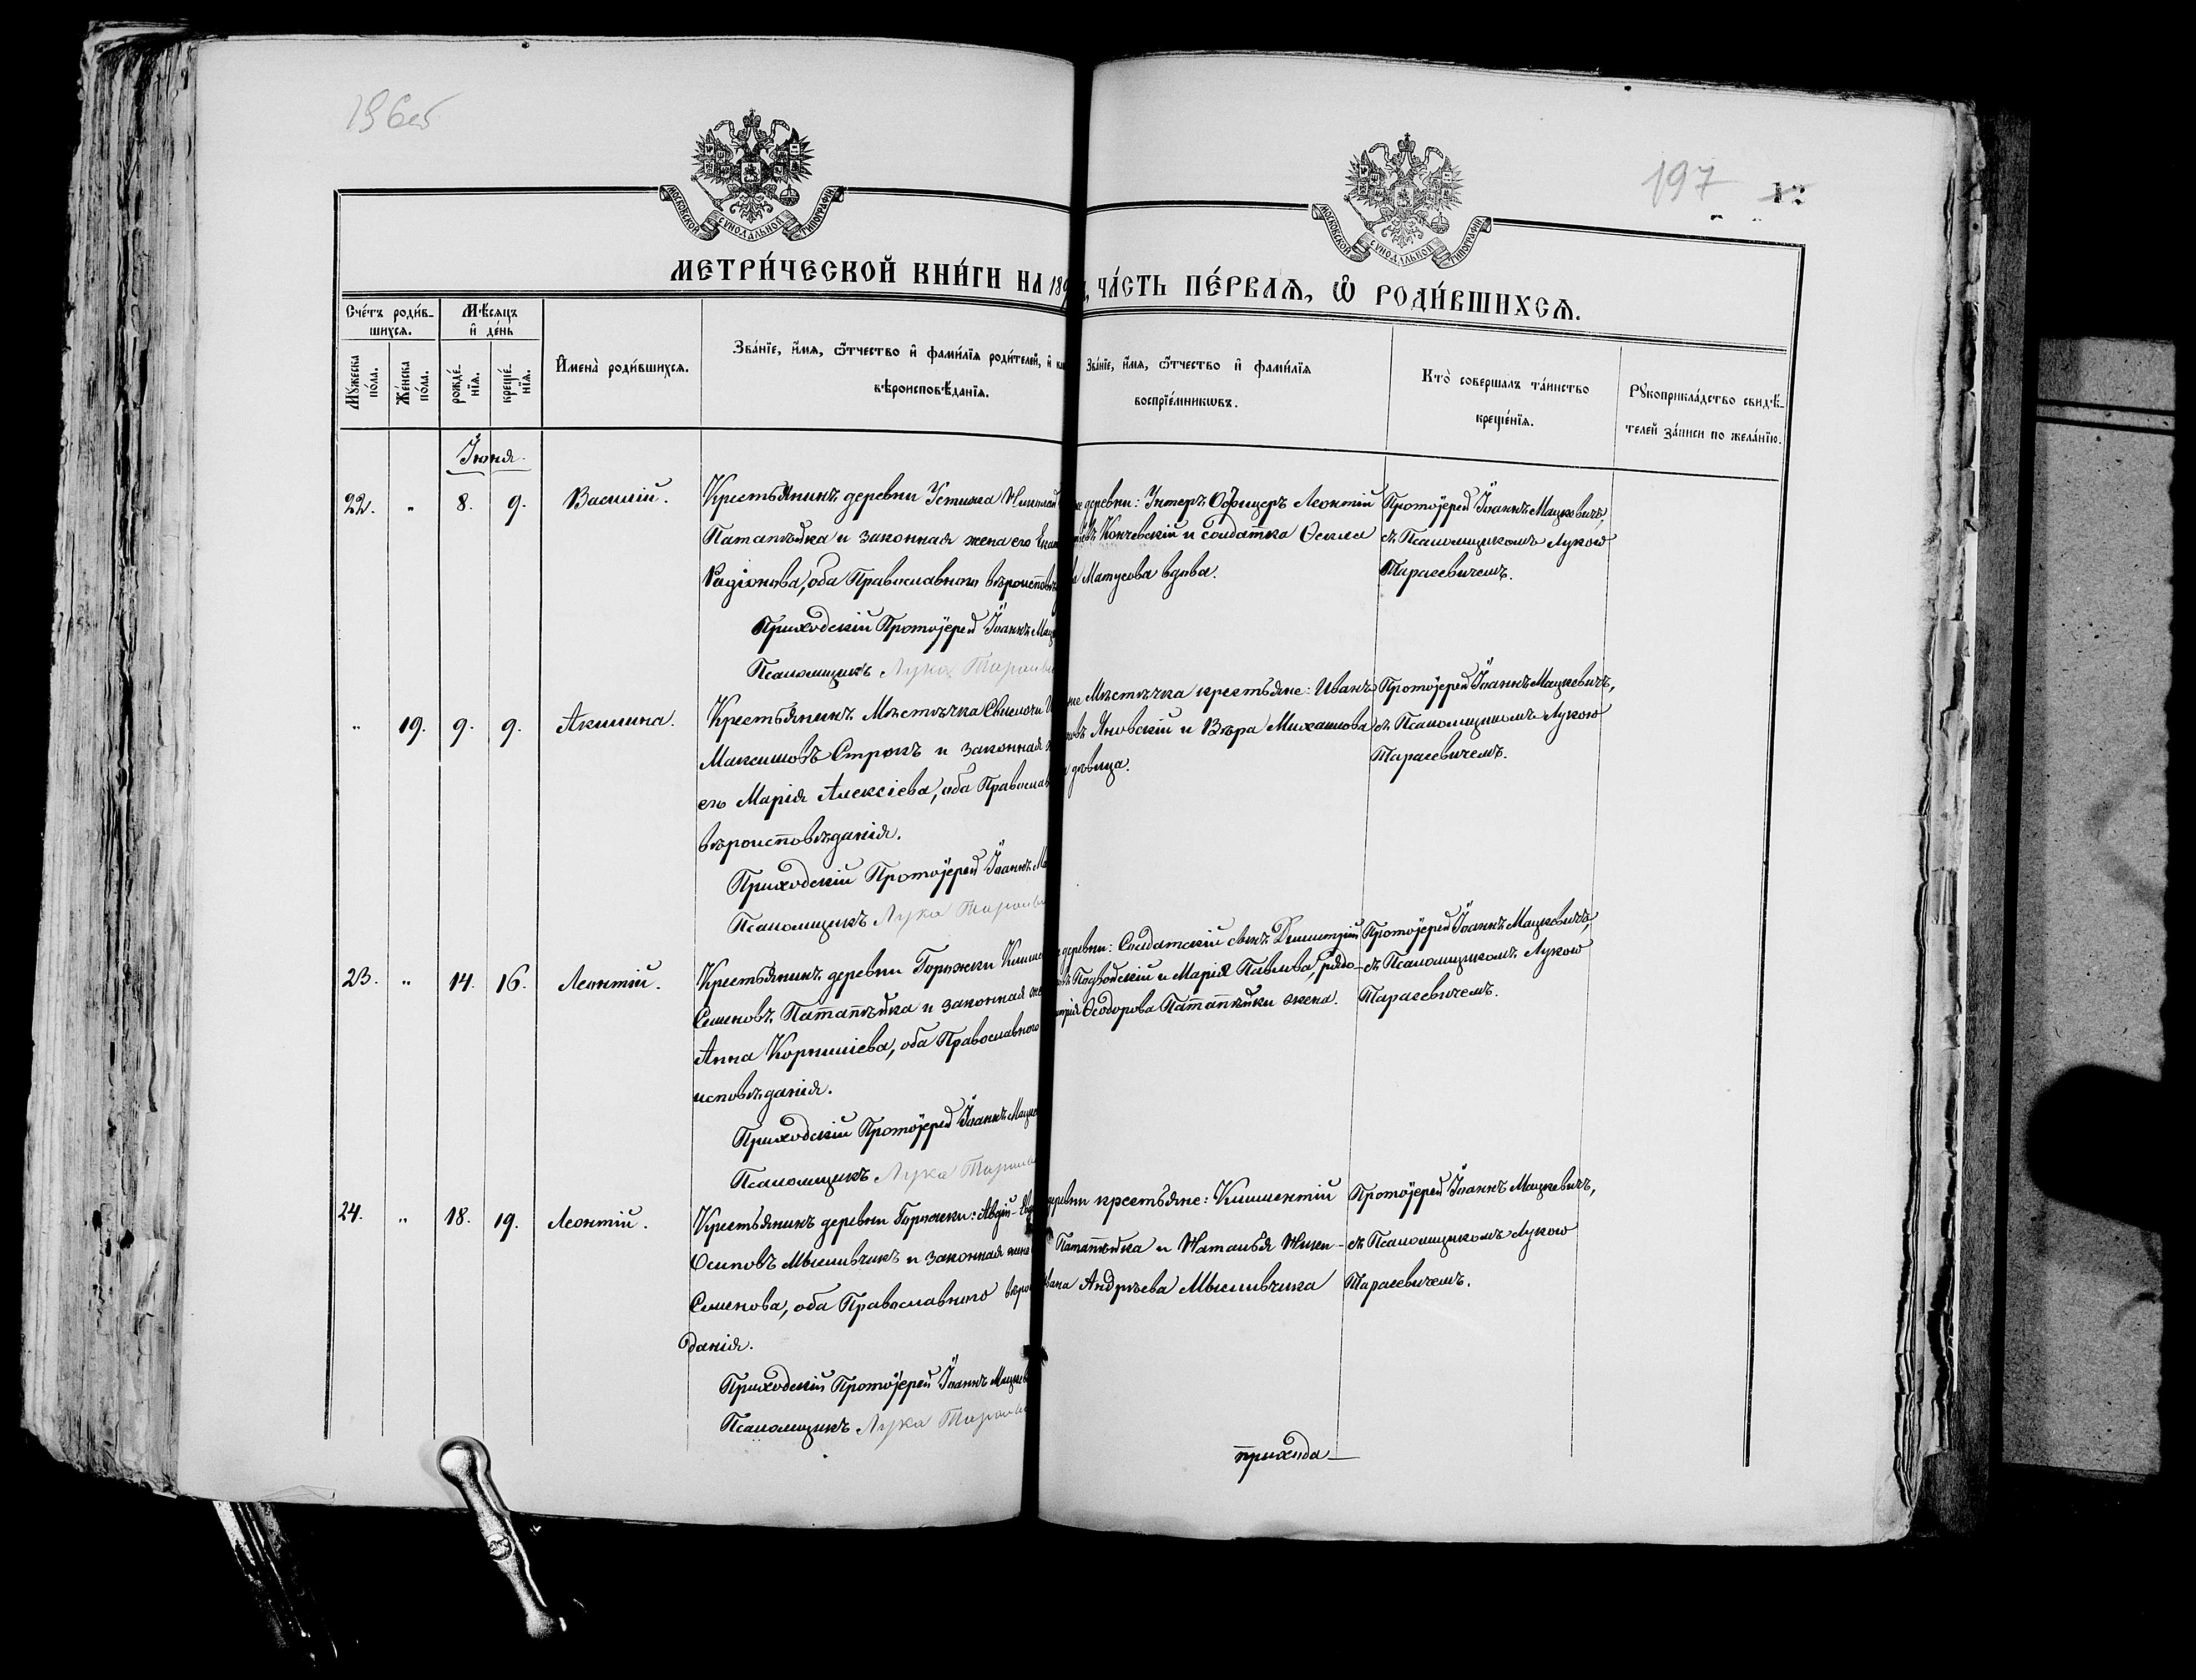 196об
197
МОСКОВСКОЙ СѴНОДАЛЬНОЙ ТИПОГРАФІИ
МОСКОВСКОЙ СѴНОДАЛЬНОЙ ТИПОГРАФІИ
МЕТРИ́ЧЕСКОЙ КНИ́ГИ НА 189 ЧА́СТЬ ПЕ́РВАѦ, Ѽ РОДИ́ВШИХСѦ.
Сче́тъ роди́в-
шихся.
Мѣ́сяцъ
и҆ де́нь
Мꙋ́жеска по́ла.
Же́нска по́ла.
рожде́-нїѧ.
креще́-нїѧ.
И҆мена̀ роди́вшихсѧ.
Зва́нїе, и҆́мѧ, ѻ҆́тчество и҆ фами́лїѧ роди́телей, и҆
вѣроисповѣ́данїѧ.
Зва́нїе, и҆́мѧ, ѻ҆́тчество и҆ фами́лїѧ
воспрїе́мникѡвъ.
Кто̀ соверша́лъ та́инство
креще́нїѧ.
Рꙋкоприкла́дство свидѣ́-
телей за́писи по жела́нїю.
Іюня.
22. " 8. 9. Василій.
Крестьянинъ деревни Устижа Николай
Патапѣйка и законная жена его
Радіонова, оба Православнаго
Приходскій Протоіерей Іоаннъ
Псаломщикъ Лука
деревни: Унтеръ Офицеръ Леонтій
Кончевскій и солдатка Ѳекла
Матусова вдова.
Протоіерей Іоаннъ Мацкевичъ,
съ Псаломщикомъ Лукою
Тарасевичемъ.
" 19. 9. 9. Акилина.
Крестьянинъ Мѣстечка Свислочи
Максимовъ Стрюкъ и законная
его Марія Алексіева, оба
вѣроисповѣданія.
Приходскій Протоіерей Іоаннъ
Псаломщикъ Лука
Мѣстечка крестьяне: Иванъ
Яновскій и Вѣра Михаилова
дѣвица.
Протоіерей Іоаннъ Мацкевичъ,
съ Псаломщикомъ Лукою
Тарасевичемъ.
23. " 14. 16. Леонтій.
Крестьянинъ деревни Горожки
Семеновъ Патапѣйка и законная
Анна Корниліева, оба Православнаго
исповѣданія.
Приходскій Протоіерей Іоаннъ
Псаломщикъ Лука
деревни: Солдатскій сынъ Димитрій
Подвойскій и Марія Павлова, рядо-
Ѳеодорова Патапѣйки жена.
Протоіерей Іоаннъ Мацкевичъ,
съ Псаломщикомъ Лукою
Тарасевичемъ.
24. " 18. 19. Леонтій.
Крестьянинъ деревни Горожки: Авдій
Осиповъ Мысливчикъ и законная
Семенова, оба Православнаго
данія.
Приходскій Протоіерей Іоаннъ
Псаломщикъ Лука
деревни крестьяне: Климентій
Патапѣйка и Наталья Ники-
Андреева Мысливчика
Протоіерей Іоаннъ Мацкевичъ,
съ Псаломщикомъ Лукою
Тарасевичемъ.
прихода